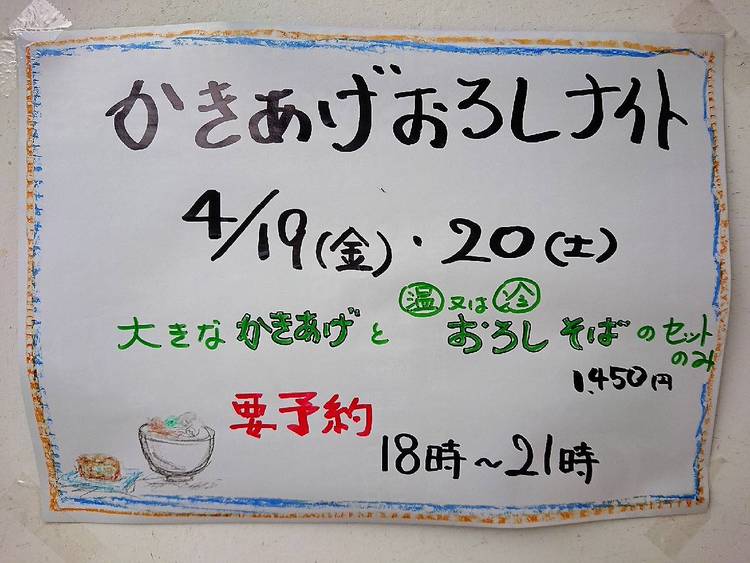 かきあげおろしナイト
4/19(金)・20(土)
温又は冷
大きなかきあげとおろしそばのセットのみ
1,450円
要予約
18時~21時